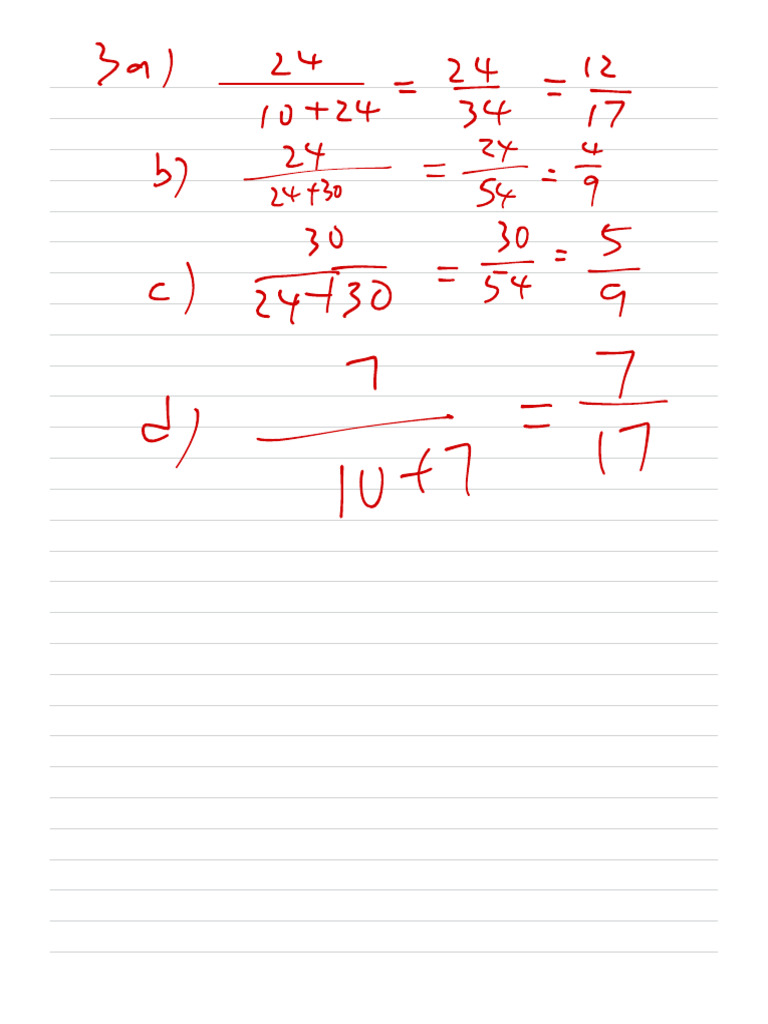 3a) 24/(10+24) = 24/34 = 12/17
b) 24/(24+30) = 24/54 = 4/9
c) 30/(24+30) = 30/54 = 5/9
d) 7/(10+7) = 7/17